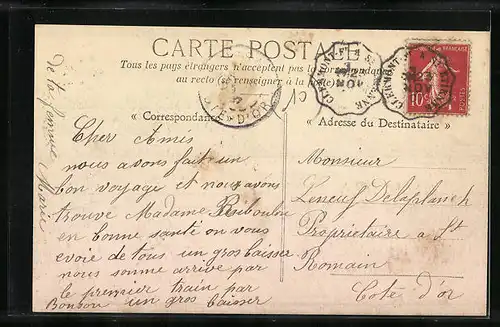 CARTE POSTALE
Tous les pays étrangers n'acceptent pas la correspondance
au recto (se renseigner à la
« Correspondance
« Adresse du Destinataire »
CLERMONT-F
CÔTE-D'OR
10
POSTES
Cher Amis
nous avons fait un
bon voyage et nous avons
trouve Madame
en bonne santé on vous
evoie de tous un gros baisser
nous somme arrive par
le premier train par
un gros baisser
de ta femme
Marie
Monsieur
Delaplanch
Propriétaire a St
Romain
Cote d'or